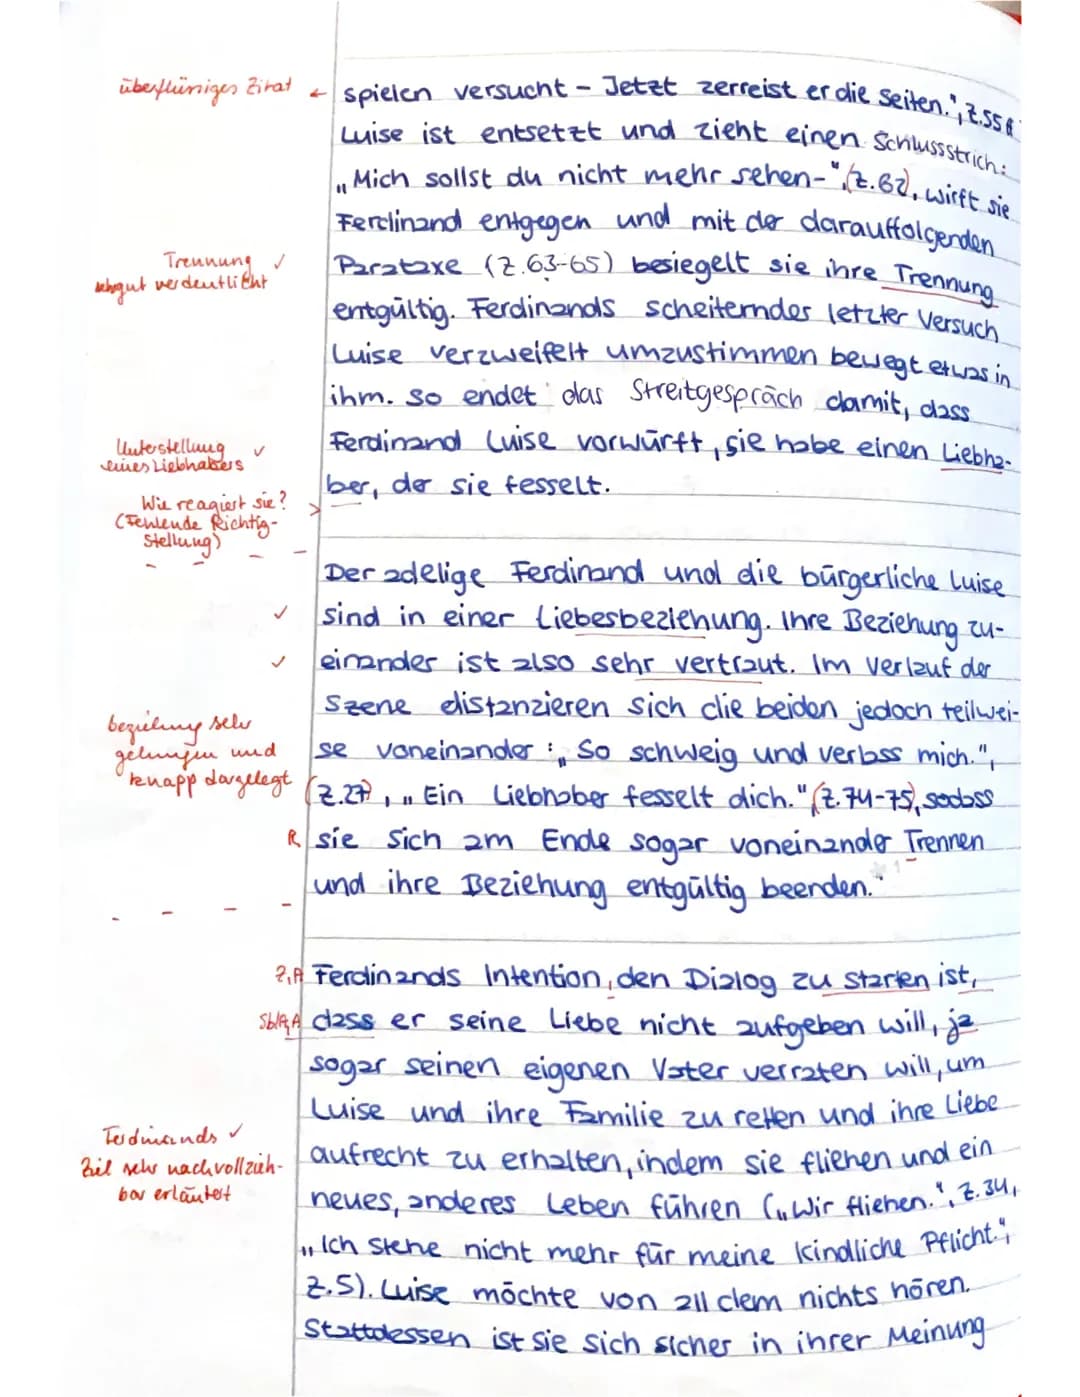 überflüssiges Zitat ← spielen versucht - Jetzt zerreist er die Seiten.", Z.55f
Luise ist entsetzt und zieht einen Schlussstrich:
„Mich sollst du nicht mehr sehen-", (Z.62), wirft sie
Ferdinand entgegen und mit der darauffolgenden
Trennung ✓ Parataxe (Z.63-65) besiegelt sie ihre Trennung
sehr gut verdeutlicht
entgültig. Ferdinands scheiternder letzter Versuch
Luise verzweifelt umzustimmen bewegt etwas in
ihm. so endet das Streitgespräch damit, dass
Unterstellung ✓ Ferdinand Luise vorwürft, sie habe einen Liebha-
eines Liebhabers
ber, der sie fesselt.
Wie reagiert sie? >
(Fehlende Richtig-
stellung)
Der adelige Ferdinand und die bürgerliche Luise
✓ sind in einer Liebesbeziehung. Ihre Beziehung zu-
✓ einander ist also sehr vertraut. Im Verlauf der
Szene distanzieren sich die beiden jedoch teilwei-
beziehung sehr
gelungen und se voneinander: „So schweig und verlass mich.",
knapp dargelegt (Z.27), „Ein Liebhaber fesselt dich." (Z.74-75), sodass
R sie sich am Ende sogar voneinander Trennen
und ihre Beziehung entgültig beenden. *1
Z,A Ferdinands Intention, den Dialog zu starten ist,
dass er seine Liebe nicht aufgeben will, ja
sogar seinen eigenen Vater verraten will, um
Luise und ihre Familie zu retten und ihre Liebe
Ferdinands ✓
Ziel sehr nachvollzieh- aufrecht zu erhalten, indem sie fliehen und ein
bar erläutert neues, anderes Leben führen („Wir fliehen.", Z.34,
„Ich stehe nicht mehr für meine kindliche Pflicht.",
Z.5). Luise möchte von all dem nichts hören.
Stattdessen ist sie sich sicher in ihrer Meinung